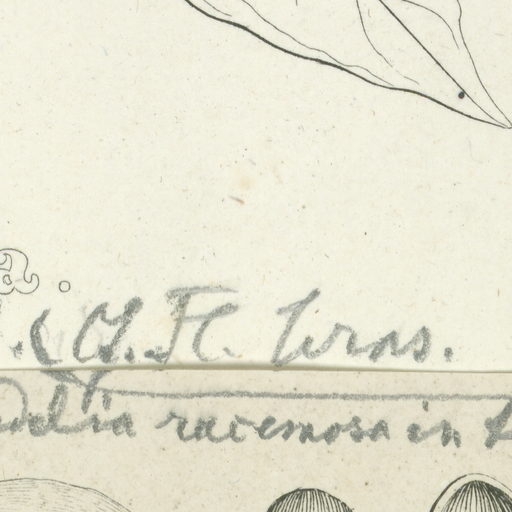 a.
Fl. bras.
delia racemosa in